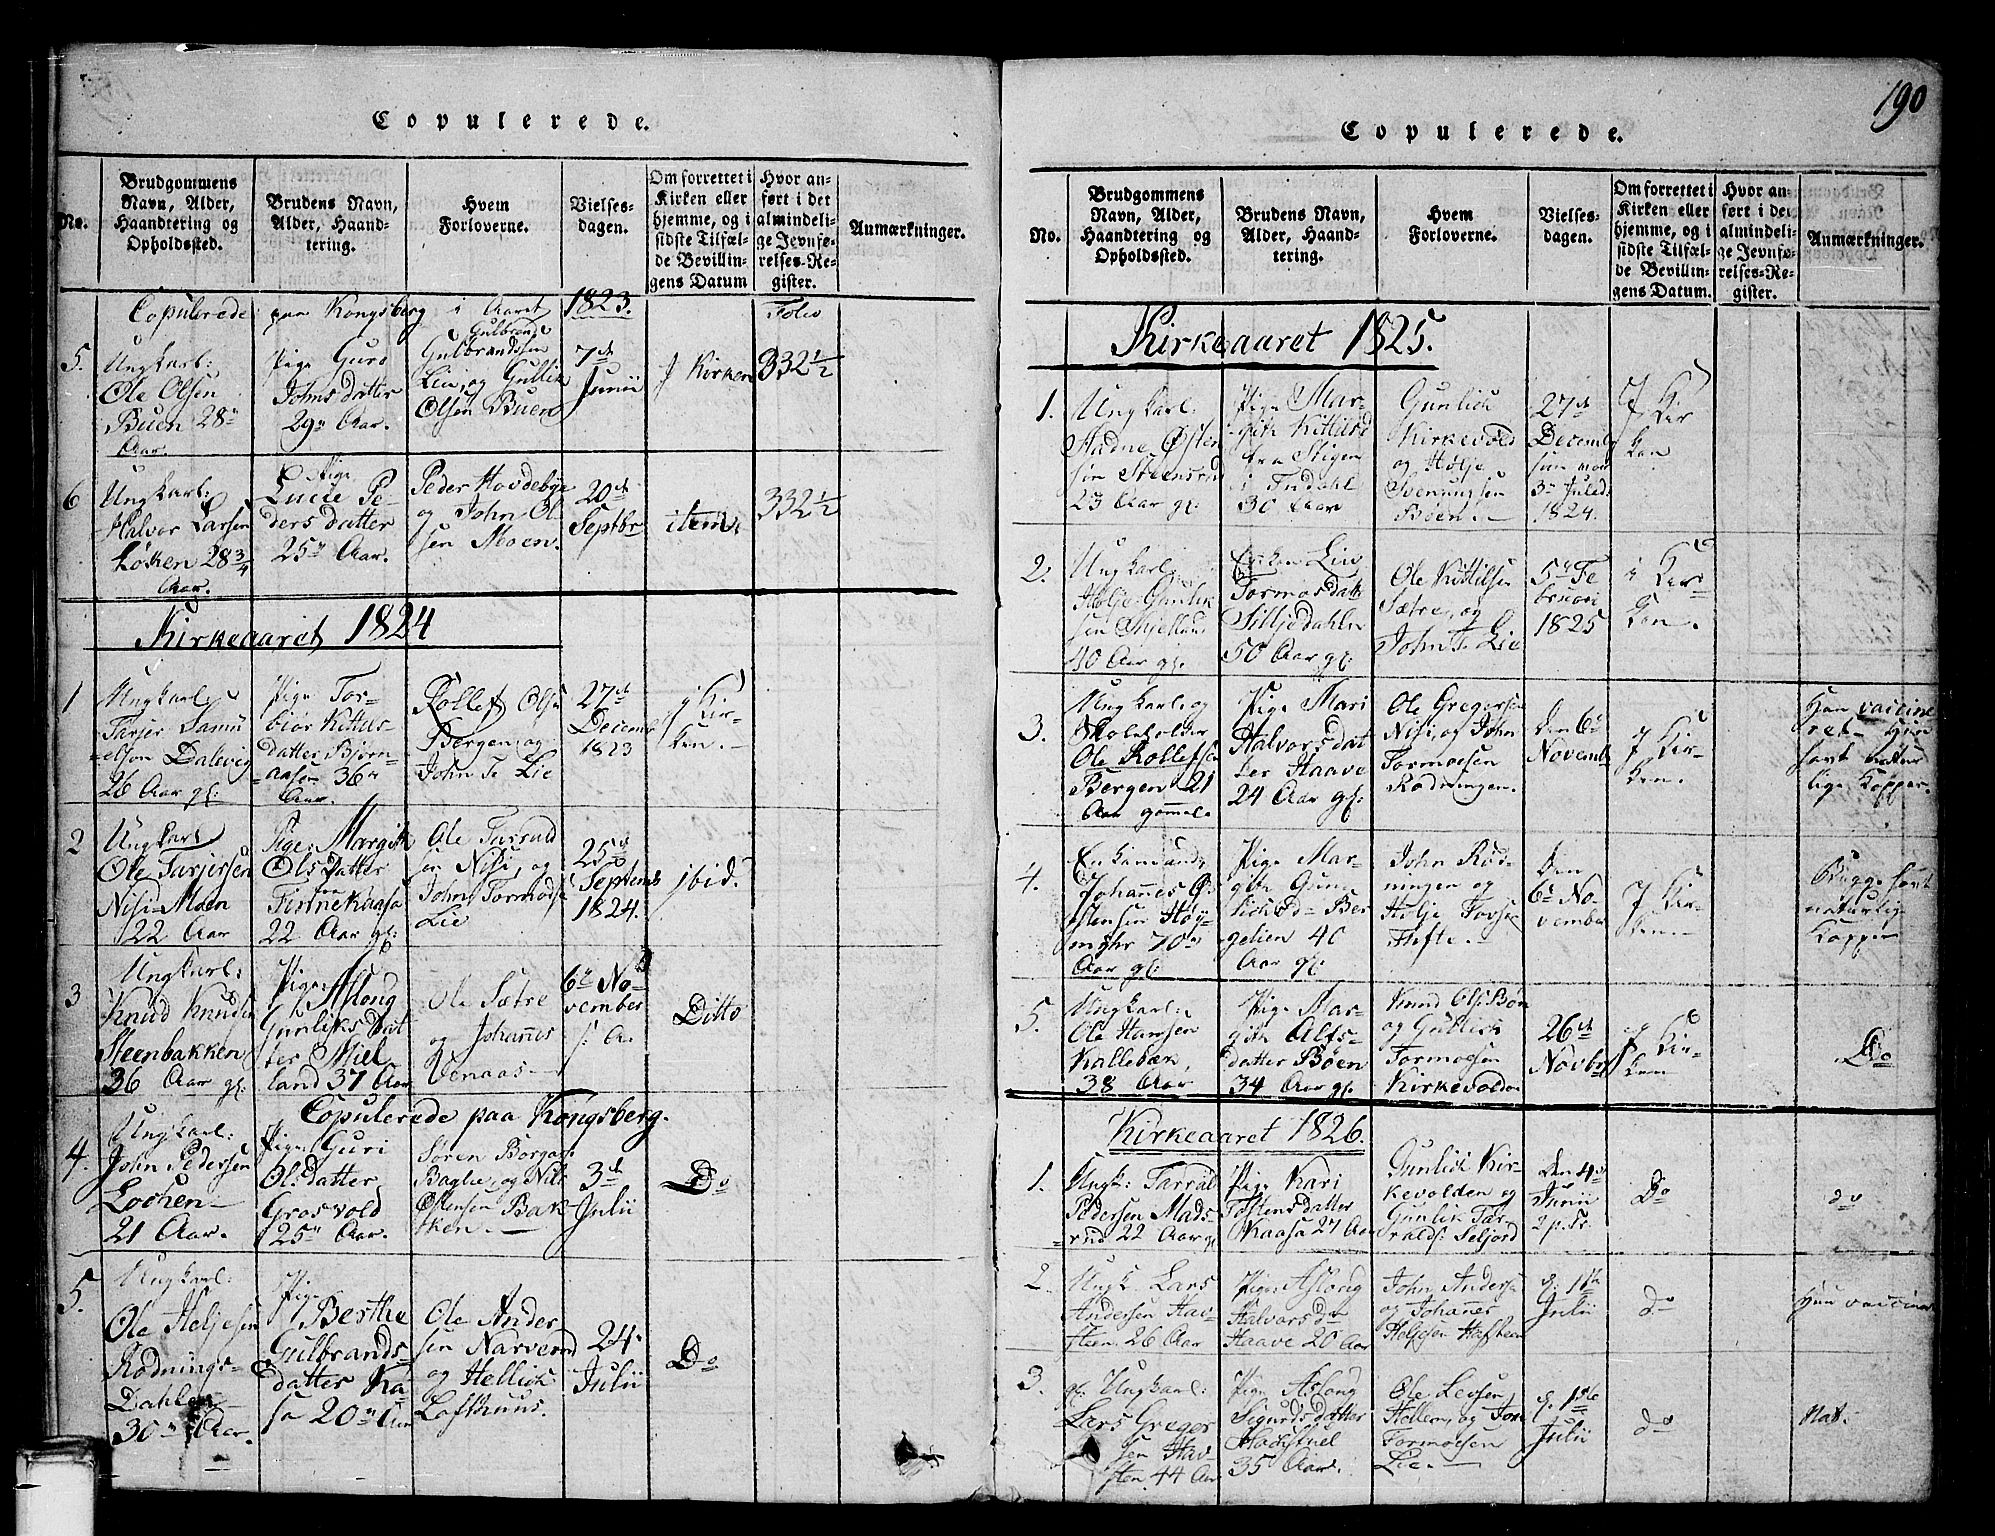 190
Copulerede.
No.
Brudgommens
Navn, Alder,
Haandtering og
Opholdssted.
Brudens Navn,
Alder, Haand-
tering.
Hvem
Forloverne.
Vielses-
dagen.
Om forrettet i
Kirken eller
hjemme, og i
sidste Tilfæl-
de Bevillin-
gens Datum
Hvor an-
ført i det
almindeli-
ge Jevnfø-
relses-Re-
gister.
Anmærkninger.
Copulerede paa Kongsberg i Aaret 1823.
Folio
5.
Ungkarl:
Ole Olsen
Buen 28"
Aar.
Pige Guro
Johnsdatter
29" Aar.
Gulbrand
Gulbrandssen
Lie, og Gullik
Olsen Buen
7de
Junii
J Kirken
332 1/2
6
Ungkarl:
Halvor Larsen
Løken 28 3/4
Aar.
Pige
Lucie Pe-
dersdatter
25" Aar.
Peder Hovdebye
og John Ol-
sen Moen.
20de
Septbr
item.
332 1/2
Kirkeaaret 1824
1
Ungkarl
Tarjer Samu
elsen Dalevig
26 Aar gl:
Pige Tor-
bior Kittils
datter Bjørn-
aasen 36"
Aar.
Rollef Ols
Bergen og
John T. Lie
27de
Decembr
1823
i Kir-
ken.
2
Ungkarl
Ole Tarjersen
Nisi-Moen
22 Aar
Pige Margith
Ols Datter
Finnekaasa
22 Aar gl:
Ole Tarrald
sen Nisi, og
John Tormods
Lie
25de
Septemb
1824.
ibid.
3
Ungkarl:
Knud Knudsen
Steenbakken
36 Aar gl.
Pige
Aslong
Gunliks Dat
ter Miel
land 37 Aar
Ole Sætre
og Johannes
Venaas
6te No-
vember
s. A.
Ditto
Copulerede paa Kongsberg.
4.
Ungkarl:
John Pedersen
Lochen
21 Aar.
Pige Guri
Olsdatter
Grosvold
25" Aar.
Søren Borgar
Baglie, og Nils
Østensen Bak-
ken.
3de
Julii
Do
5.
Ungkarl:
Ole Heljesen
Rødnings-
Dahlen
30 Aar.
Pige
Berthe
Gulbrands-
datter Ka
sa 20" Aar
Ole Ander
sen Narverud
og Hellich
Lofthuus.
24
Julii
Do
Copulerede.
No.
Brudgommens
Navn, Alder,
Haandtering og
Opholdssted.
Brudens Navn,
Alder, Haand-
tering.
Hvem
Forloverne.
Vielses-
dagen.
Om forrettet i
Kirken eller
hjemme, og i
sidste Tilfæl-
de Bevillin-
gens Datum.
Hvor an-
ført i det
almindeli-
ge Jevnfø-
relses-Re-
gister.
Anmærkninger.
Kirkeaaret 1825.
1.
Ungkarl.
Aadne Østen
søn Steensrud
23 Aar gl.
Pige Mar-
gith Kittilsd
fra Stigen
i Indahl
30 Aar
Gunlich
Kirkevold
og Helje
Svenungsen
Bøen.
27de
Decemb
som var
3die Juled:
1824.
J Kir
ken
2.
Ungkarl
Helje Gunlik
sen Mjelland
40 Aar gl.
Enken Liv
Tormosdatt
Silljedahlen
50 Aar gl:
Ole Kittilsen
Sætre, og
John T. Lie
5te Fe
bruari
1825
i Kir-
ken.
3.
Ungkarl og
Skoleholder
Ole Rollefsen
Bergen 21
Aar gammel
Pige Mari
Halvorsdat
ter Haave
24 Aar gl.
Ole Gregersen
Nisi, og John
Tormoesen
Rødningen.
den 6te
Novemb
J Kir-
ken.
Han vaccine
ret. Hun
havt natur
lige Kopper.
4.
Enkemand,
Johannes Ø-
stensen Høy-
70
Aar gl.
Pige Mar-
gith Gun-
lichsd. Ber
gelien 40
Aar gl.
John Rød-
ningen og
Helje Tovsen
Hefte.
Den
6te No-
vember
J Kir-
ken.
Begge havt
naturlig
Kopper
5.
Ungkarl:
Ole Hansen
Kallebæk
38 Aar
Pige Mar-
gith Alfs-
datter Bøen
34 Aar gl.
Knud Ols: Bøn
og Gullich
Tormoesen
Kirkevolden
26de
Novbr
J Kir-
ken
Do
Kirkeaaret 1826.
1.
Ungk: Tarrald
Pedersen Mads-
rud 22 Aar gl
Pige Kari
Tostensdatter
Kaasa 27 Aar
Gunlich Kir-
kevolden og
Gunlik Tar-
ralds: Seljord
den 4de
Junii
2 p. Tr.
Do
do
2.
Ungk. Lars
Andersen Hav-
steen 26 Aar
Pige Aslong
Halvorsdr
Haave 20 Aar
John Anders
og Johannes
Heljesen Hafsteen
d. 1ste
Julii
do
Hun vaccine
3.
gl. Ungkarl:
Lars Greger
sen Hav-
sten. 44 Aar
Pige Aslong
Sigurdsdatter
35 Aar.
Ole Levsen
Hellem, og John
Tormoesen
Lie.
d. 1ste
Julii
do
Nat.